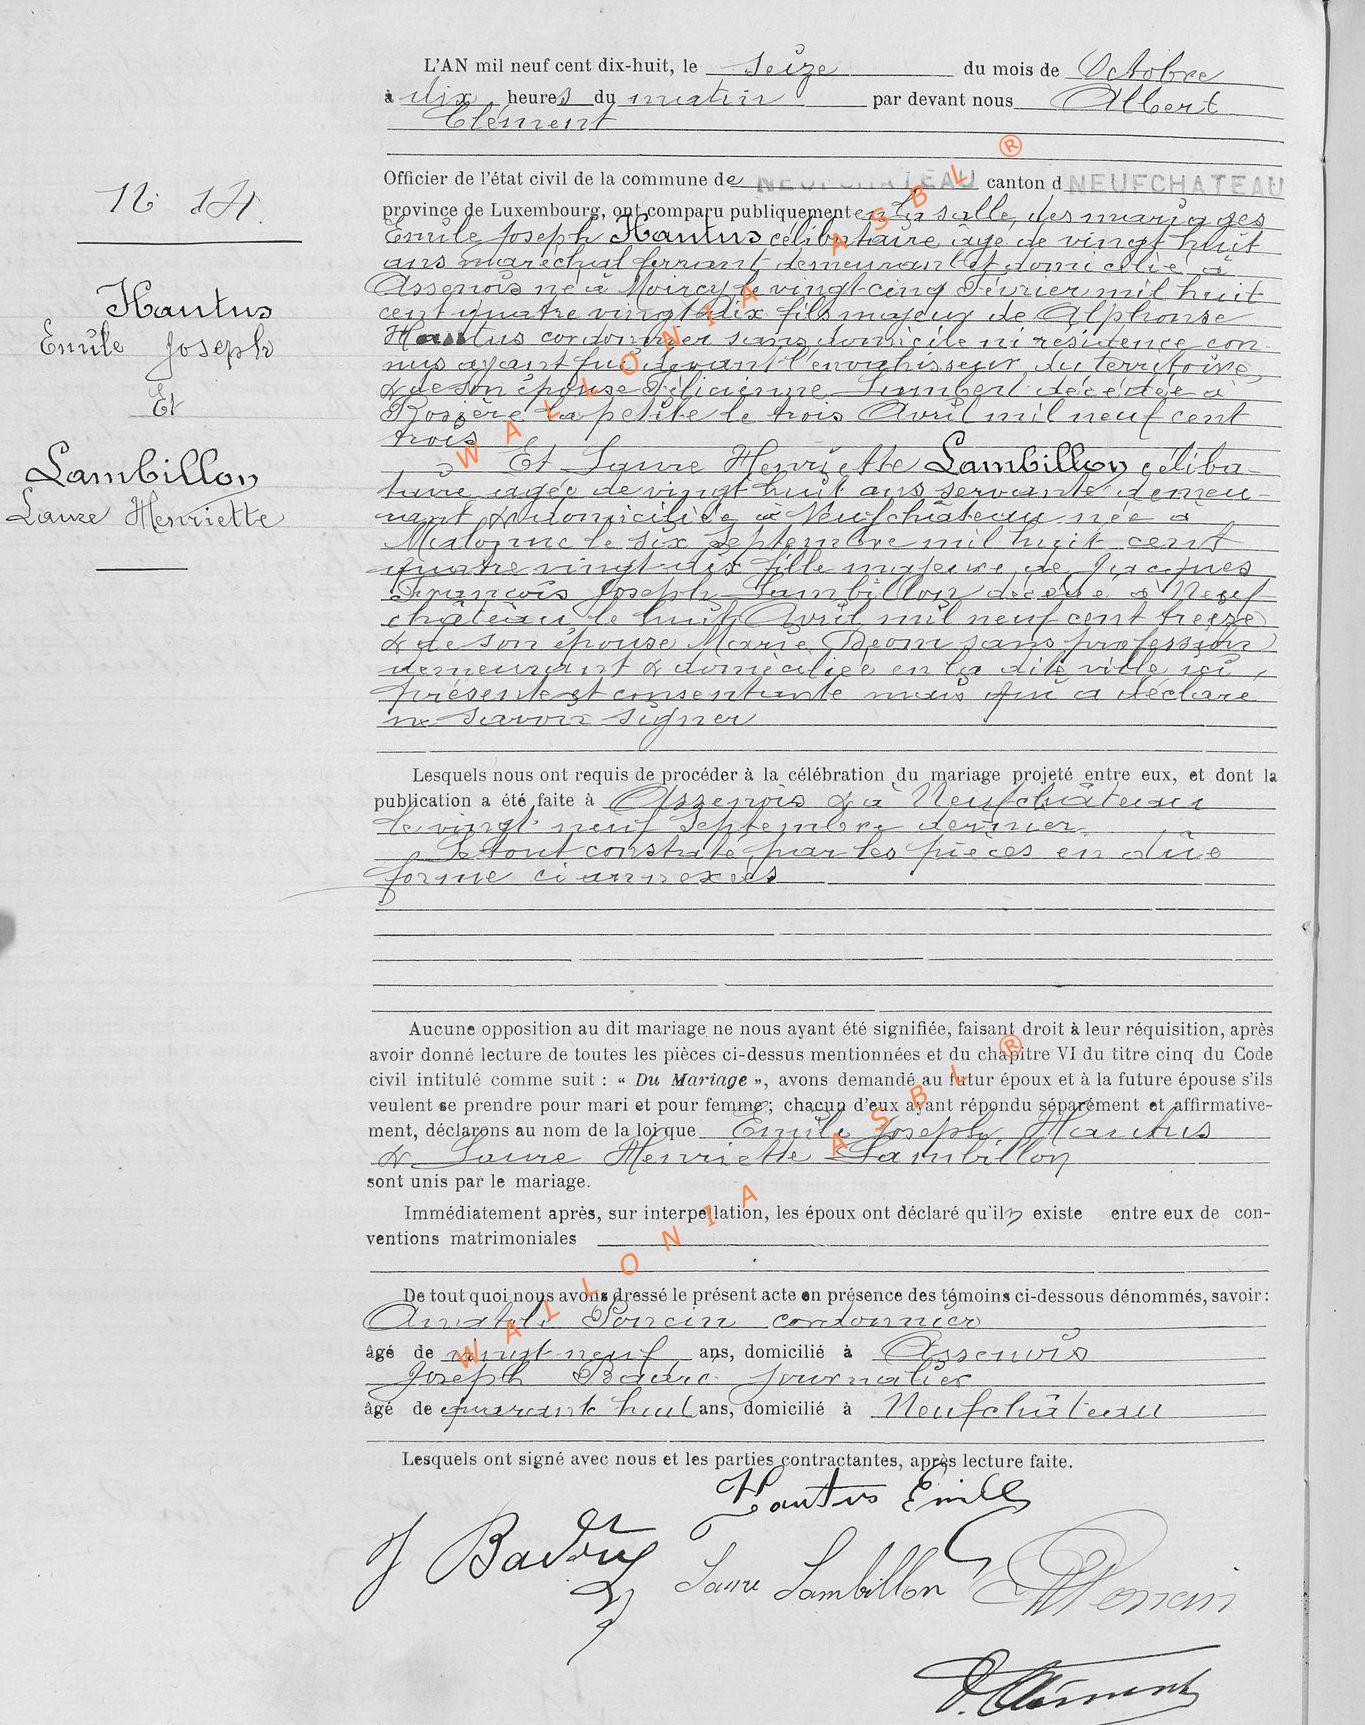 L'AN mil neuf cent dix-huit, le seize du mois de Octobre
à dix heures du matin par devant nous Albert
Clément
Officier de l'état civil de la commune de NEUFCHATEAU canton d NEUFCHATEAU
province de Luxembourg, ont comparu publiquement en la salle des mariages
N: 14.
Hautus
Emile Joseph
Et
Lambillon
Laure Henriette
Emile Joseph Hautus célibataire âgé de vingt huit
ans maréchal ferrant demeurant et domicilié à
Assenois né à Moircy le vingt-cinq Février mil huit
cent quatre vingt dix fils majeur de Alphonse
Hautus cordonnier sans domicile ni résidence con-
nus ayant fui devant l'envahisseur du territoire,
& de son épouse Félicienne Lambert décédée à
Rosière la petite le trois Avril mil neuf cent
trois
Et Laure Henriette Lambillon céliba-
taire agée de vingt huit ans servante demeu-
rant & domiciliée à Neufchâteau née à
le six Septembre mil huit cent
quatre vingt dix fille majeure de Jacques
François Joseph Lambillon décédé à Neuf
château le huit Avril mil neuf cent treize
& de son épouse Marie Deom sans profession
demeurant & domiciliée en la dite ville ici,
présente et consentante mais qui a déclaré
ne savoir signer
Lesquels nous ont requis de procéder à la célébration du mariage projeté entre eux, et dont la
publication a été faite à Assenois & à Neufchâteau
le vingt neuf Septembre dernier.
Le tout constaté par les pièces en due
forme ci annexées
Aucune opposition au dit mariage ne nous ayant été signifiée, faisant droit à leur réquisition, après
avoir donné lecture de toutes les pièces ci-dessus mentionnées et du chapitre VI du titre cinq du Code
civil intitulé comme suit : « Du Mariage », avons demandé au futur époux et à la future épouse s'ils
veulent se prendre pour mari et pour femme ; chacun d'eux ayant répondu séparément et affirmative-
ment, déclarons au nom de la loi que Emile Joseph Hautus
& Laure Henriette Lambillon
sont unis par le mariage.
Immédiatement après, sur interpellation, les époux ont déclaré qu'il n existe entre eux de con-
ventions matrimoniales
De tout quoi nous avons dressé le présent acte en présence des témoins ci-dessous dénommés, savoir :
Anatole cordonnier
âgé de vingt-neuf ans, domicilié à Assenois
Joseph journalier
âgé de quarante huit ans, domicilié à Neufchâteau
Lesquels ont signé avec nous et les parties contractantes, après lecture faite.
Hautus Emile
J Baudry
Laure Lambillon
Clément
WALLONIA ASBL ®
WALLONIA ASBL ®